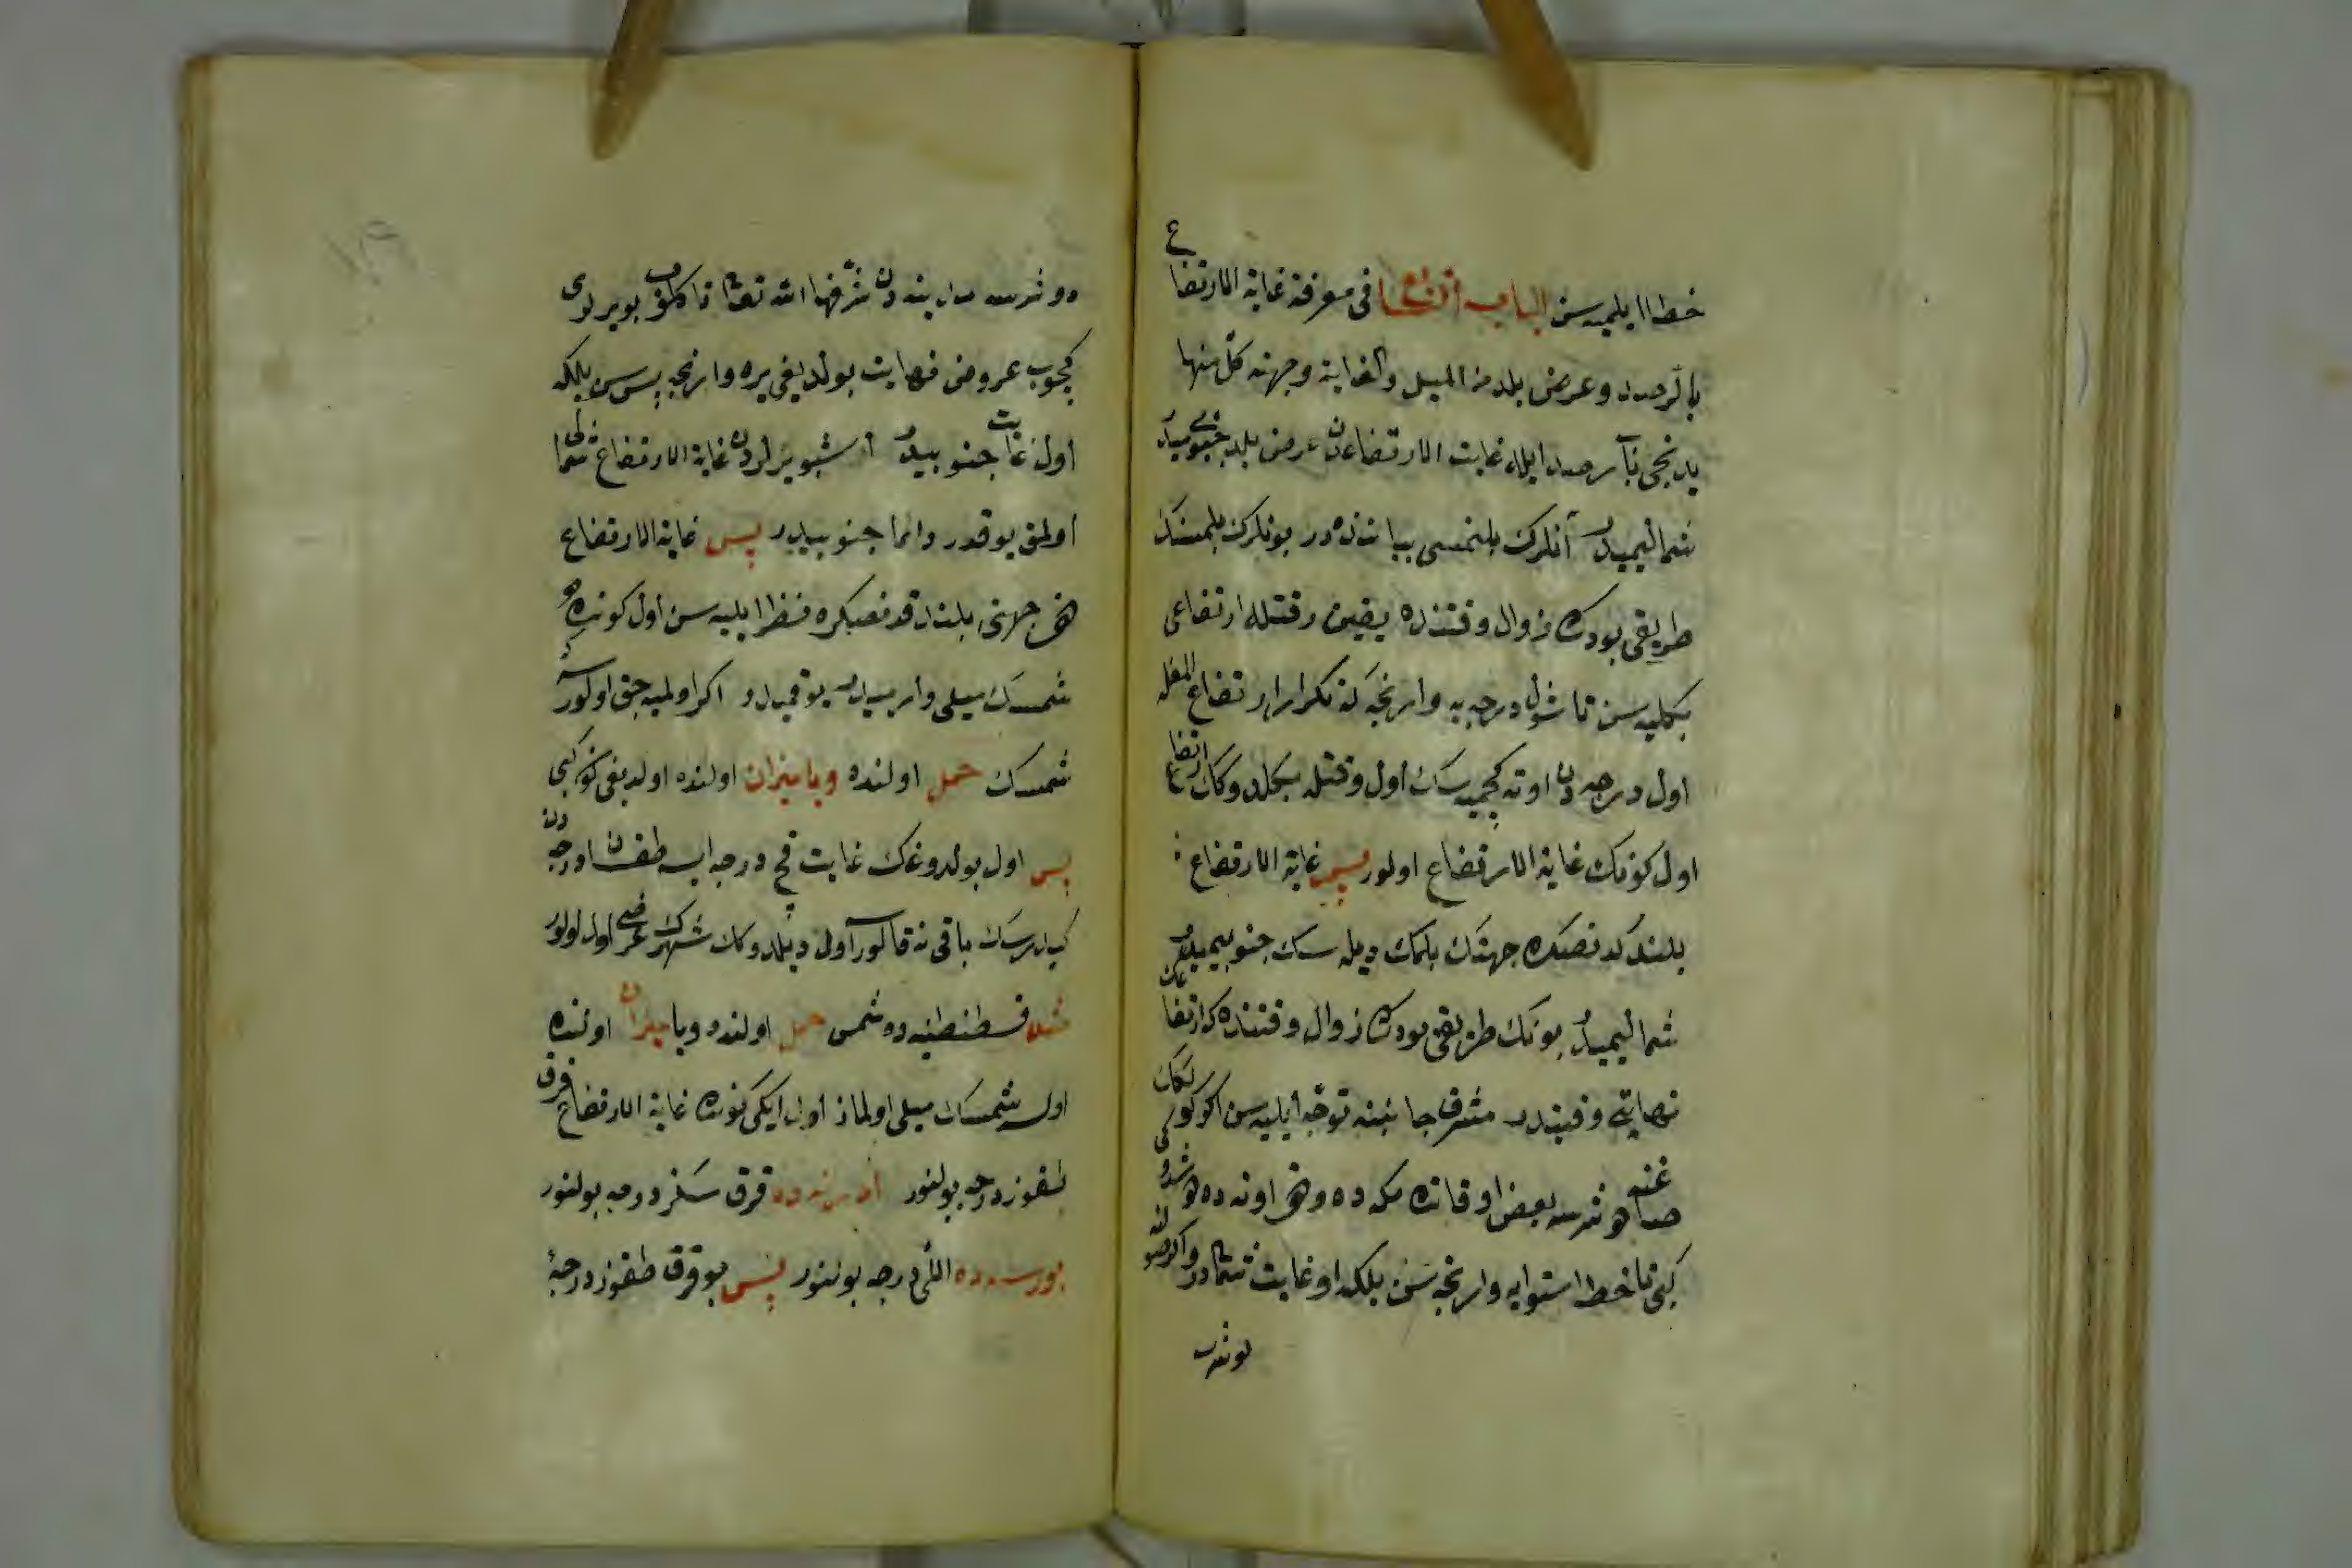 خطا ايلميه سن الباب فى معرفة غاية الارتفاع
بالرصد وعرض بلد من الميل والغاية وجهته كل منها
يدنجى باب رصد ايله غايت الارتفاعدن عرض بلد جنوبيميدر
شماليميدر آنلرك بلنمسى بياننده در بونلرك بلمسنك
طريقى بودركه زوال وقتنده يقين وقتله ارتفاعى
بكليه سن تا شول درجه يه وارنجه كه تكرار ارتفاع
اول درجه دن اوته كچميه سك اول وقتله ارتفاع
اول كونك غاية الارتفاع اولور پس غاية الارتفاع
بلندكدنصكره جهتك بلمك ديله سك جنوبيميدر
شماليميدر بونك طريقى بودركه زوال وقتنده كه ارتفاعك
نهايتى وقتيدر مشرق جانبنه توجه ايليه سن اكر كولكك
صاغنه دوشرسه بعض اوقاتده مكه ده وهم اوته ده
كبى تا خط استوايه وارنجه سن بلكه او غايت شمالدر واكر صولنه
دوشر
دوشرسه مدينه دن شرفها الله تعالى تا كلوب بو يرلرى
كچوب عروض نهايت بولديغى يره وارنجه پس سن بلكه
اول غايت جنوبيدر اشبو يرلرده غاية الارتفاع شمالى
اولمق يوقدر دائما جنوبيدر پس غاية الارتفاع
هم جهتى بلندكدنصكره نظر ايليه سن اول كونده
شمسك ميلى وارميدر يوقميدر اكر اولميه جق اولورسه
شمسك حمل اولنده ويا ميزان اولنده اولديغى كون كبى
پس اول بولدوغك غايت قچ درجه ايسه طقسان درجه دن
كيدرسك باقى نه قالور اول ديلدوكك شهرك عرضى اول اولور
مثلا قسطنطنيه ده شمس حمل اولنده ويا ميزان اولنده
اولسه شمسك ميلى اولماز اول ايكى كونده غاية الارتفاع قرق
طقوز درجه بولنور ادرنه ده قرق سكز درجه بولنور
بورسه ده اللى درجه بولنور پس بو قرق طقوز درجه